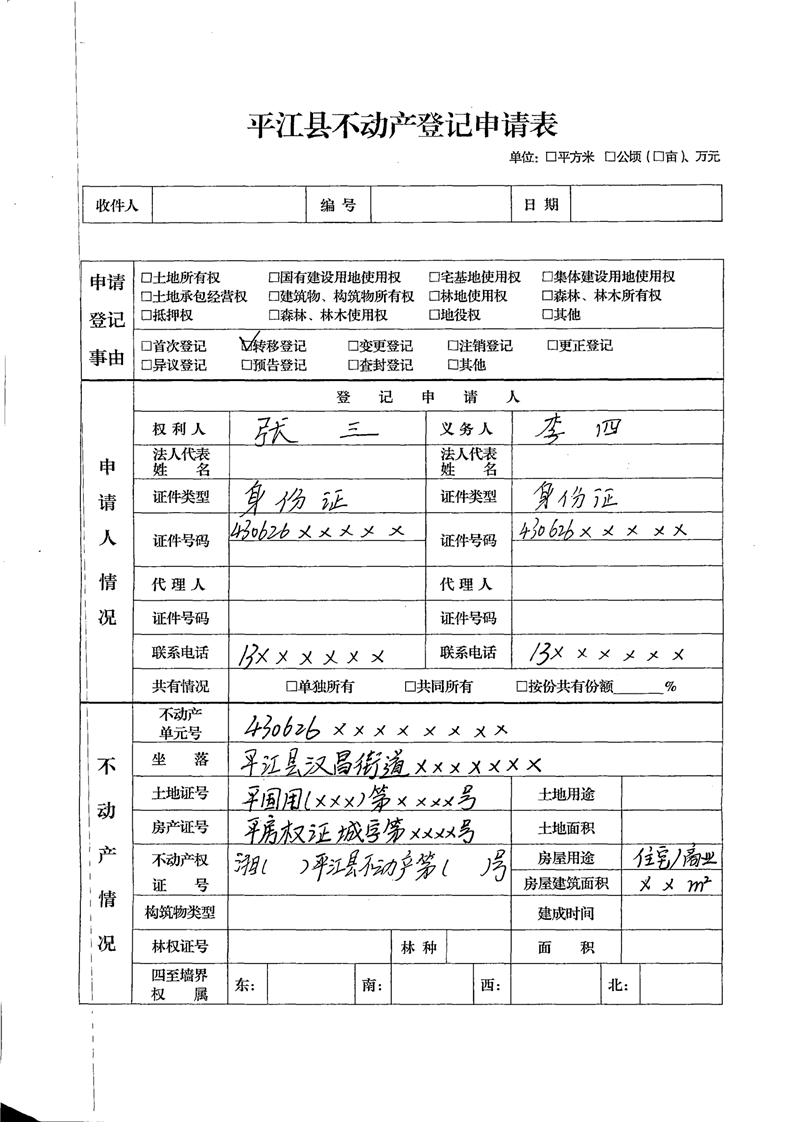 平江县不动产登记申请表
单位：□平方米 □公顷（□亩）、万元
收件人 编号 日期
申请登记事由
□土地所有权 □国有建设用地使用权 □宅基地使用权 □集体建设用地使用权
□土地承包经营权 □建筑物、构筑物所有权 □林地使用权 □森林、林木所有权
□抵押权 □森林、林木使用权 □地役权 □其他
□首次登记 ☑转移登记 □变更登记 □注销登记 □更正登记
□异议登记 □预告登记 □查封登记 □其他
申请人情况
登记申请人
权利人 张三 义务人 李四
法人代表姓名 法人代表姓名
证件类型 身份证 证件类型 身份证
证件号码 430626××××× 证件号码 430626×××××
代理人 代理人
证件号码 证件号码
联系电话 13×××××× 联系电话 13××××××
共有情况 □单独所有 □共同所有 □按份共有份额______%
不动产情况
不动产单元号 430626××××××××
坐落 平江县汉昌街道×××××××
土地证号 平国用(×××)第××××号 土地用途
房产证号 平房权证城字第××××号 土地面积
不动产权证号 湘( )平江县不动产第( )号 房屋用途 住宅/商业
房屋建筑面积 ××m²
构筑物类型 建成时间
林权证号 林种 面积
四至墙界权属 东： 南： 西： 北：